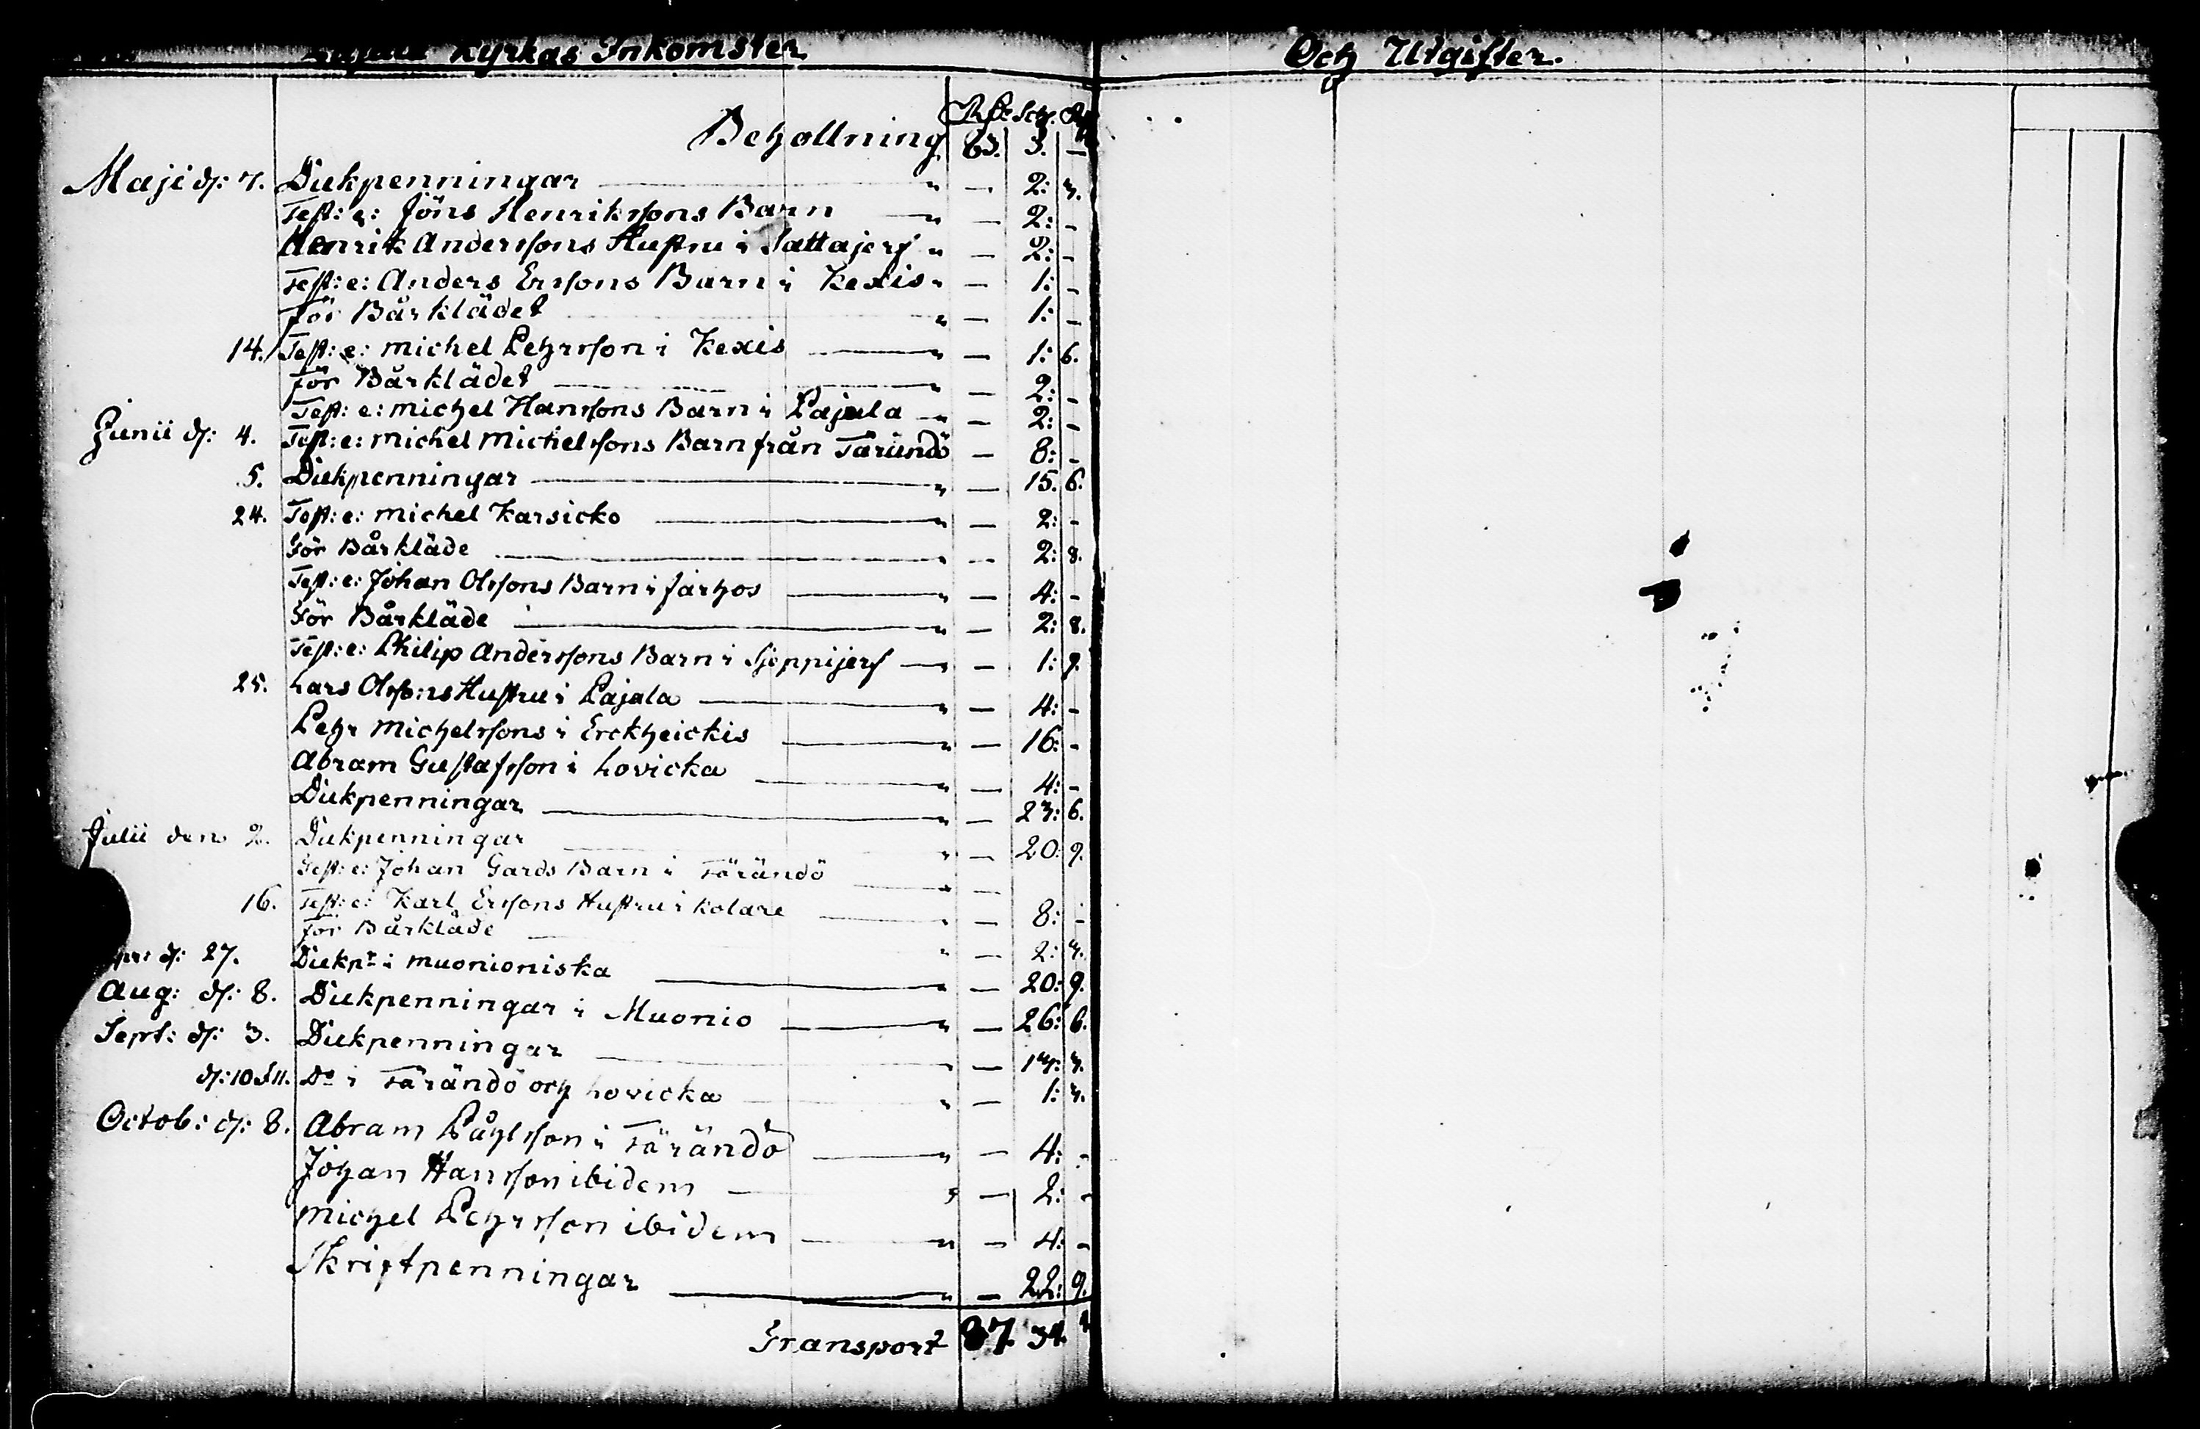 Kyrkas Inkomster
Och Utgifter.
Rd: Sch. R
Behollning 63. 3. —
Maji d: 7. Diskpenningar " — 2: 7.
Test: e: Jöns Henrikssons Barn " — 2: -
Henrik Anderssons Hustru i Sattajerf " — 2: -
Test: e: Anders Erssons Barn i Kexis " — 1: -
För Bårklädet " — 1: -
14. Test: e: Michel Pehrsson i Kexis " — 1: 6.
för Bårklädet " — 2: -
Test: e: Michel Hanssons Barn i Pajala " — 2: -
Junii d: 4. Test: e: Michel Michelssons Barn från Tärändö — 8: -
5. Diskpenningar " — 15. 6.
24. Test: e: Michel Karsicko " — 2: -
För Bårkläde " — 2: 8.
Test: e: Johan Olssons Barn i Jarhos " — 4: -
För Bårkläde " — 2: 8.
Test: e: Philip Anderssons Barn i Sjeppijerf " — 1: 9.
25. Lars Olssons Hustru i Pajala " — 4: -
Pehr Michelssons i Erckheickis " — 16: -
Abram Gustafsson i Lovicka " — 4: -
Diskpenningar " — 23: 6.
Julii den 2. Diskpenningar " — 20: 9.
Test: e: Johan Gards Barn i Tärändö " —
16. Test: e: Karl Erssons Hustru i Kolare " — 8: -
För Bårkläde " — 2: 7.
d: 27. Diskpr i Muonioniska " — 20: 9.
Aug: d: 8. Diskpenningar i Muonio " — 26: 6.
Sept: d: 3. Diskpenningar " — 17: 7.
d: 10 & 11. Do i Tärändö och Lovicka " — 1: 7.
Octob: d: 8. Abram Påhlsson i Tärändö " — 4: -
Johan Hansson ibidem " — 2: -
Michel Pehrsson ibidem " — 4: -
Skriftpenningar " — 22: 9.
Transport 37. 34.